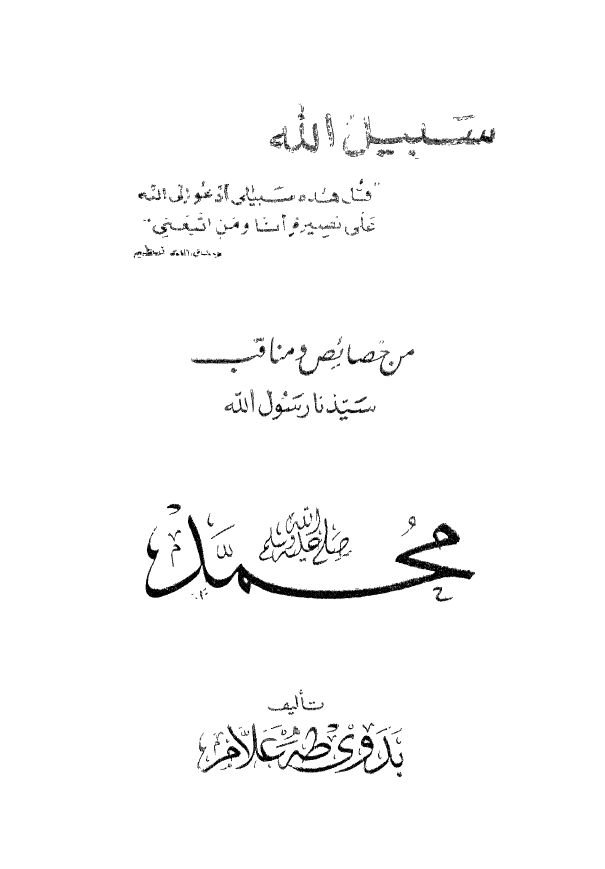 سَبيلُ الله
"قُل هٰذه سَبيلى أدعُو إلَى الله
عَلَى بَصِيرةٍ أنَا ومَنِ اتّبَعَنِى"
صدق الله العظيم
من خصائِص ومناقب
سَيّدنا رسُول الله
مُحمّد صلى الله عليه وسلم
تأليف
بدَوى طه عَلّام